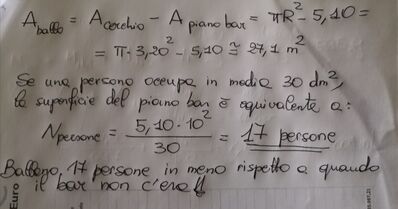 A ballo = A cerchio − A piano bar = πR² − 5,10 =
= π · 3,20² − 5,10 ≅ 27,1 m²
Se una persona occupa in media 30 dm²,
la superficie del piano bar è equivalente a:
N persone = 5,10 · 10² / 30 = 17 persone
Ballano, 17 persone in meno rispetto a quando
il bar non c'era!!
Euro